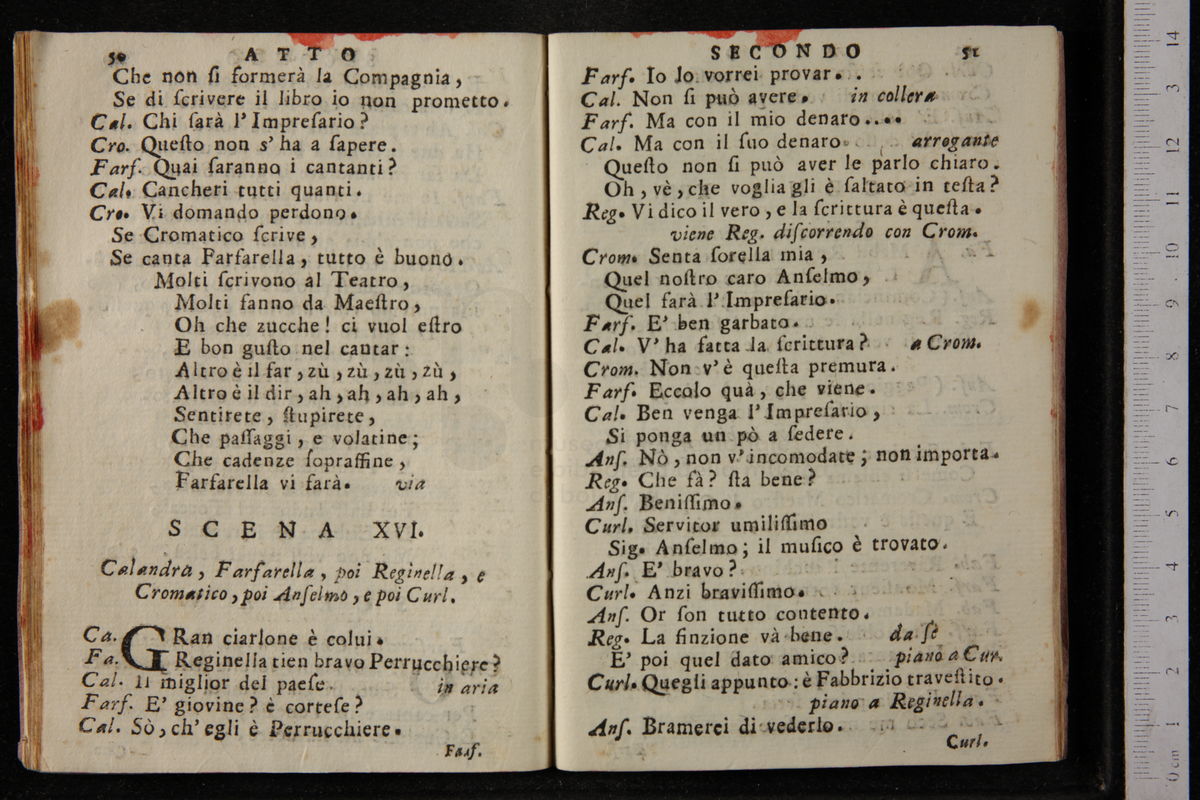 50 ATTO
Che non ſi formerà la Compagnia,
Se di ſcrivere il libro io non prometto.
Cal. Chi ſarà l'Impreſario?
Cro. Queſto non s' ha a ſapere.
Farſ. Quai ſaranno i cantanti?
Cal. Cancheri tutti quanti.
Cro. Vi domando perdono.
Se Cromatico ſcrive,
Se canta Farfarella, tutto è buono.
Molti ſcrivono al Teatro,
Molti fanno da Maeſtro,
Oh che zucche! ci vuol eſtro
E bon guſto nel cantar:
Altro è il far, zù, zù, zù, zù,
Altro è il dir, ah, ah, ah, ah,
Sentirete, ſtupirete,
Che paſſaggi, e volatine;
Che cadenze ſopraffine,
Farfarella vi farà. via
SCENA XVI.
Calandra, Farfarella, poi Reginella, e
Cromatico, poi Anſelmo, e poi Curl.
Ca. GRan ciarlone è colui.
Fa. Reginella tien bravo Perrucchiere?
Cal. Il miglior del paeſe. in aria
Farf. E' giovine? è corteſe?
Cal. Sò, ch' egli è Perrucchiere.
Farf.
SECONDO 51
Farf. Io lo vorrei provar. .
Cal. Non ſi può avere. in collera
Farf. Ma con il mio denaro....
Cal. Ma con il ſuo denaro. arrogante
Queſto non ſi può aver le parlo chiaro.
Oh, vè, che voglia gli è ſaltato in teſta?
Reg. Vi dico il vero, e la ſcrittura è queſta.
viene Reg. diſcorrendo con Crom.
Crom. Senta ſorella mia,
Quel noſtro caro Anſelmo,
Quel ſarà l' Impreſario.
Farf. E' ben garbato.
Cal. V' ha fatta la ſcrittura? a Crom.
Crom. Non v' è queſta premura.
Farf. Eccolo quà, che viene.
Cal. Ben venga l'Impreſario,
Si ponga un pò a ſedere.
Anſ. Nò, non v' incomodate; non importa.
Reg. Che fà? ſta bene?
Anſ. Beniſſimo.
Curl. Servitor umiliſſimo
Sig. Anſelmo; il muſico è trovato.
Anſ. E' bravo?
Curl. Anzi braviſſimo.
Anſ. Or ſon tutto contento.
Reg. La finzione và bene. da ſè
E' poi quel dato amico? piano a Cur.
Curl. Quegli appunto: è Fabbrizio traveſtito.
piano a Reginella.
Anſ. Bramerei di vederlo.
Curl.
14
13
12
11
10
9
8
7
6
5
4
3
2
1
0 cm